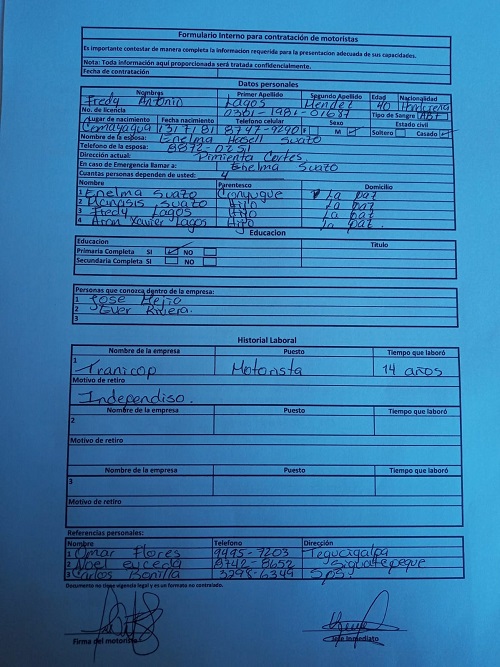 Formulario Interno para contratación de motoristas
Es importante contestar de manera completa la informacion requerida para la presentacion adecuada de sus capacidades.
Nota: Toda información aquí proporcionada será tratada confidencialmente.
Fecha de contratación
Datos personales
Nombres Primer Apellido Segundo Apellido Edad Nacionalidad
Fredy Antonio Lagos Mendez 40 Hondureña
No. de licencia 0301-1981-01637 Tipo de Sangre
Lugar de nacimiento Fecha nacimiento Telefono celular Sexo Estado civil
Comayagua 31 7 81 8747-9290 M Soltero Casado
Nombre de la esposa: Enelma Suazo
Telefono de la esposa: 8872-0251
Dirección actual: Pimienta Cortes
En caso de Emergencia llamar a: Enelma Suazo
Cuantas personas dependen de usted: 4
Nombre Parentesco Domicilio
1 Enelma Suazo Conyugue La paz
2 Suazo Hijo La paz
3 Fredy Lagos Hijo La paz
4 Xavier Lagos Hijo La paz.
Educacion
Educacion Titulo
Primaria Completa SI NO
Secundaria Completa SI NO
Personas que conozca dentro de la empresa:
1 Jose Mejia
2 Ever Riviera.
3
Historial Laboral
Nombre de la empresa Puesto Tiempo que laboró
1 Tranicop Motorista 14 años
Motivo de retiro
Independiso.
Nombre de la empresa Puesto Tiempo que laboró
2
Motivo de retiro
Nombre de la empresa Puesto Tiempo que laboró
3
Motivo de retiro
Referencias personales:
Nombre Telefono Dirección
1 Omar Flores 9495-7203 Tegucigalpa
2 Noel euceda 8742-8652 Siguatepeque
3 Carlos Bonilla 3298-6349 Sps.
Documento no tiene vigencia legal y es un formato no controlado.
Firma del motorista Jefe Inmediato